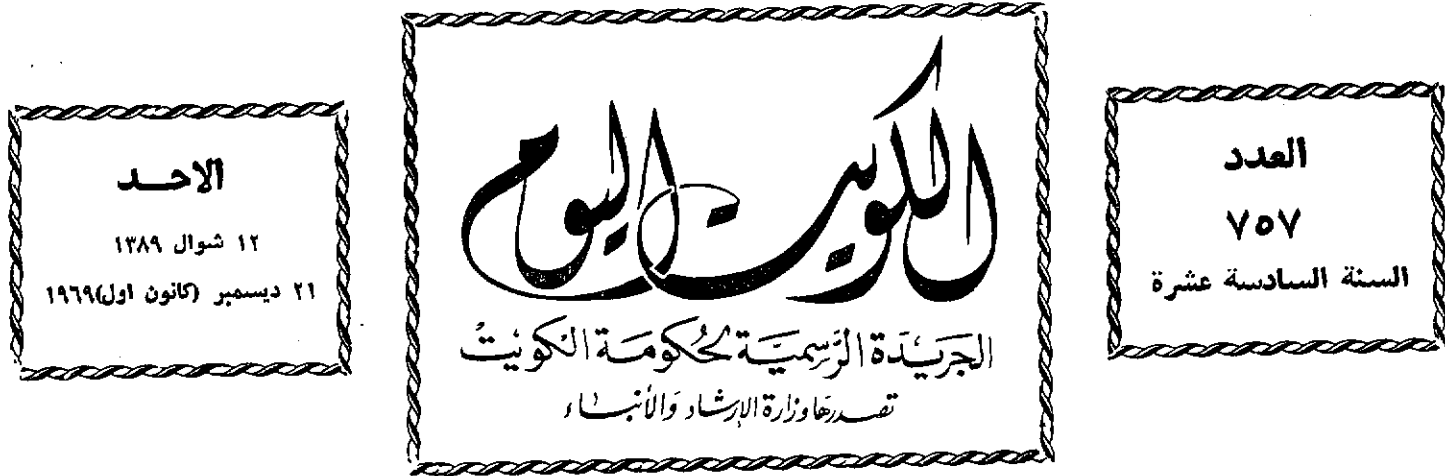 العدد
٧٥٧
السنة السادسة عشرة
الكويت اليوم
الجريدة الرسمية لحكومة الكويت
تصدرها وزارة الإرشاد والأنباء
الاحد
١٢ شوال ١٣٨٩
٢١ ديسمبر (كانون اول)١٩٦٩